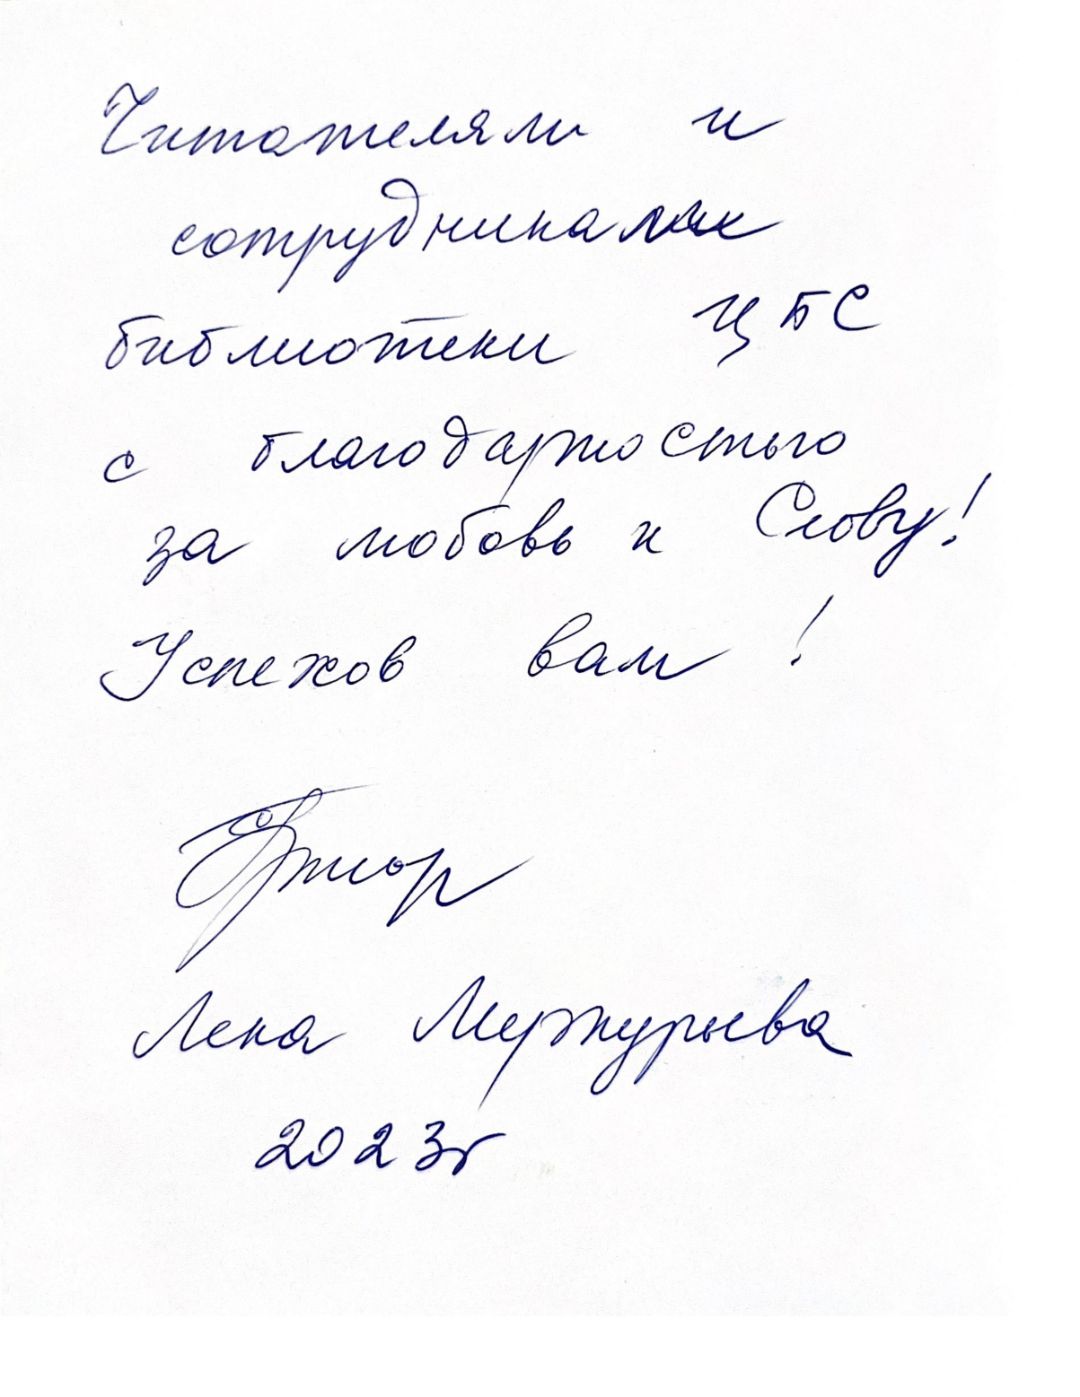 Читателям и
сотрудникам
библиотеки ЦБС
с благодарностью
за любовь к Слову!
Успехов вам!
Лена
2023г